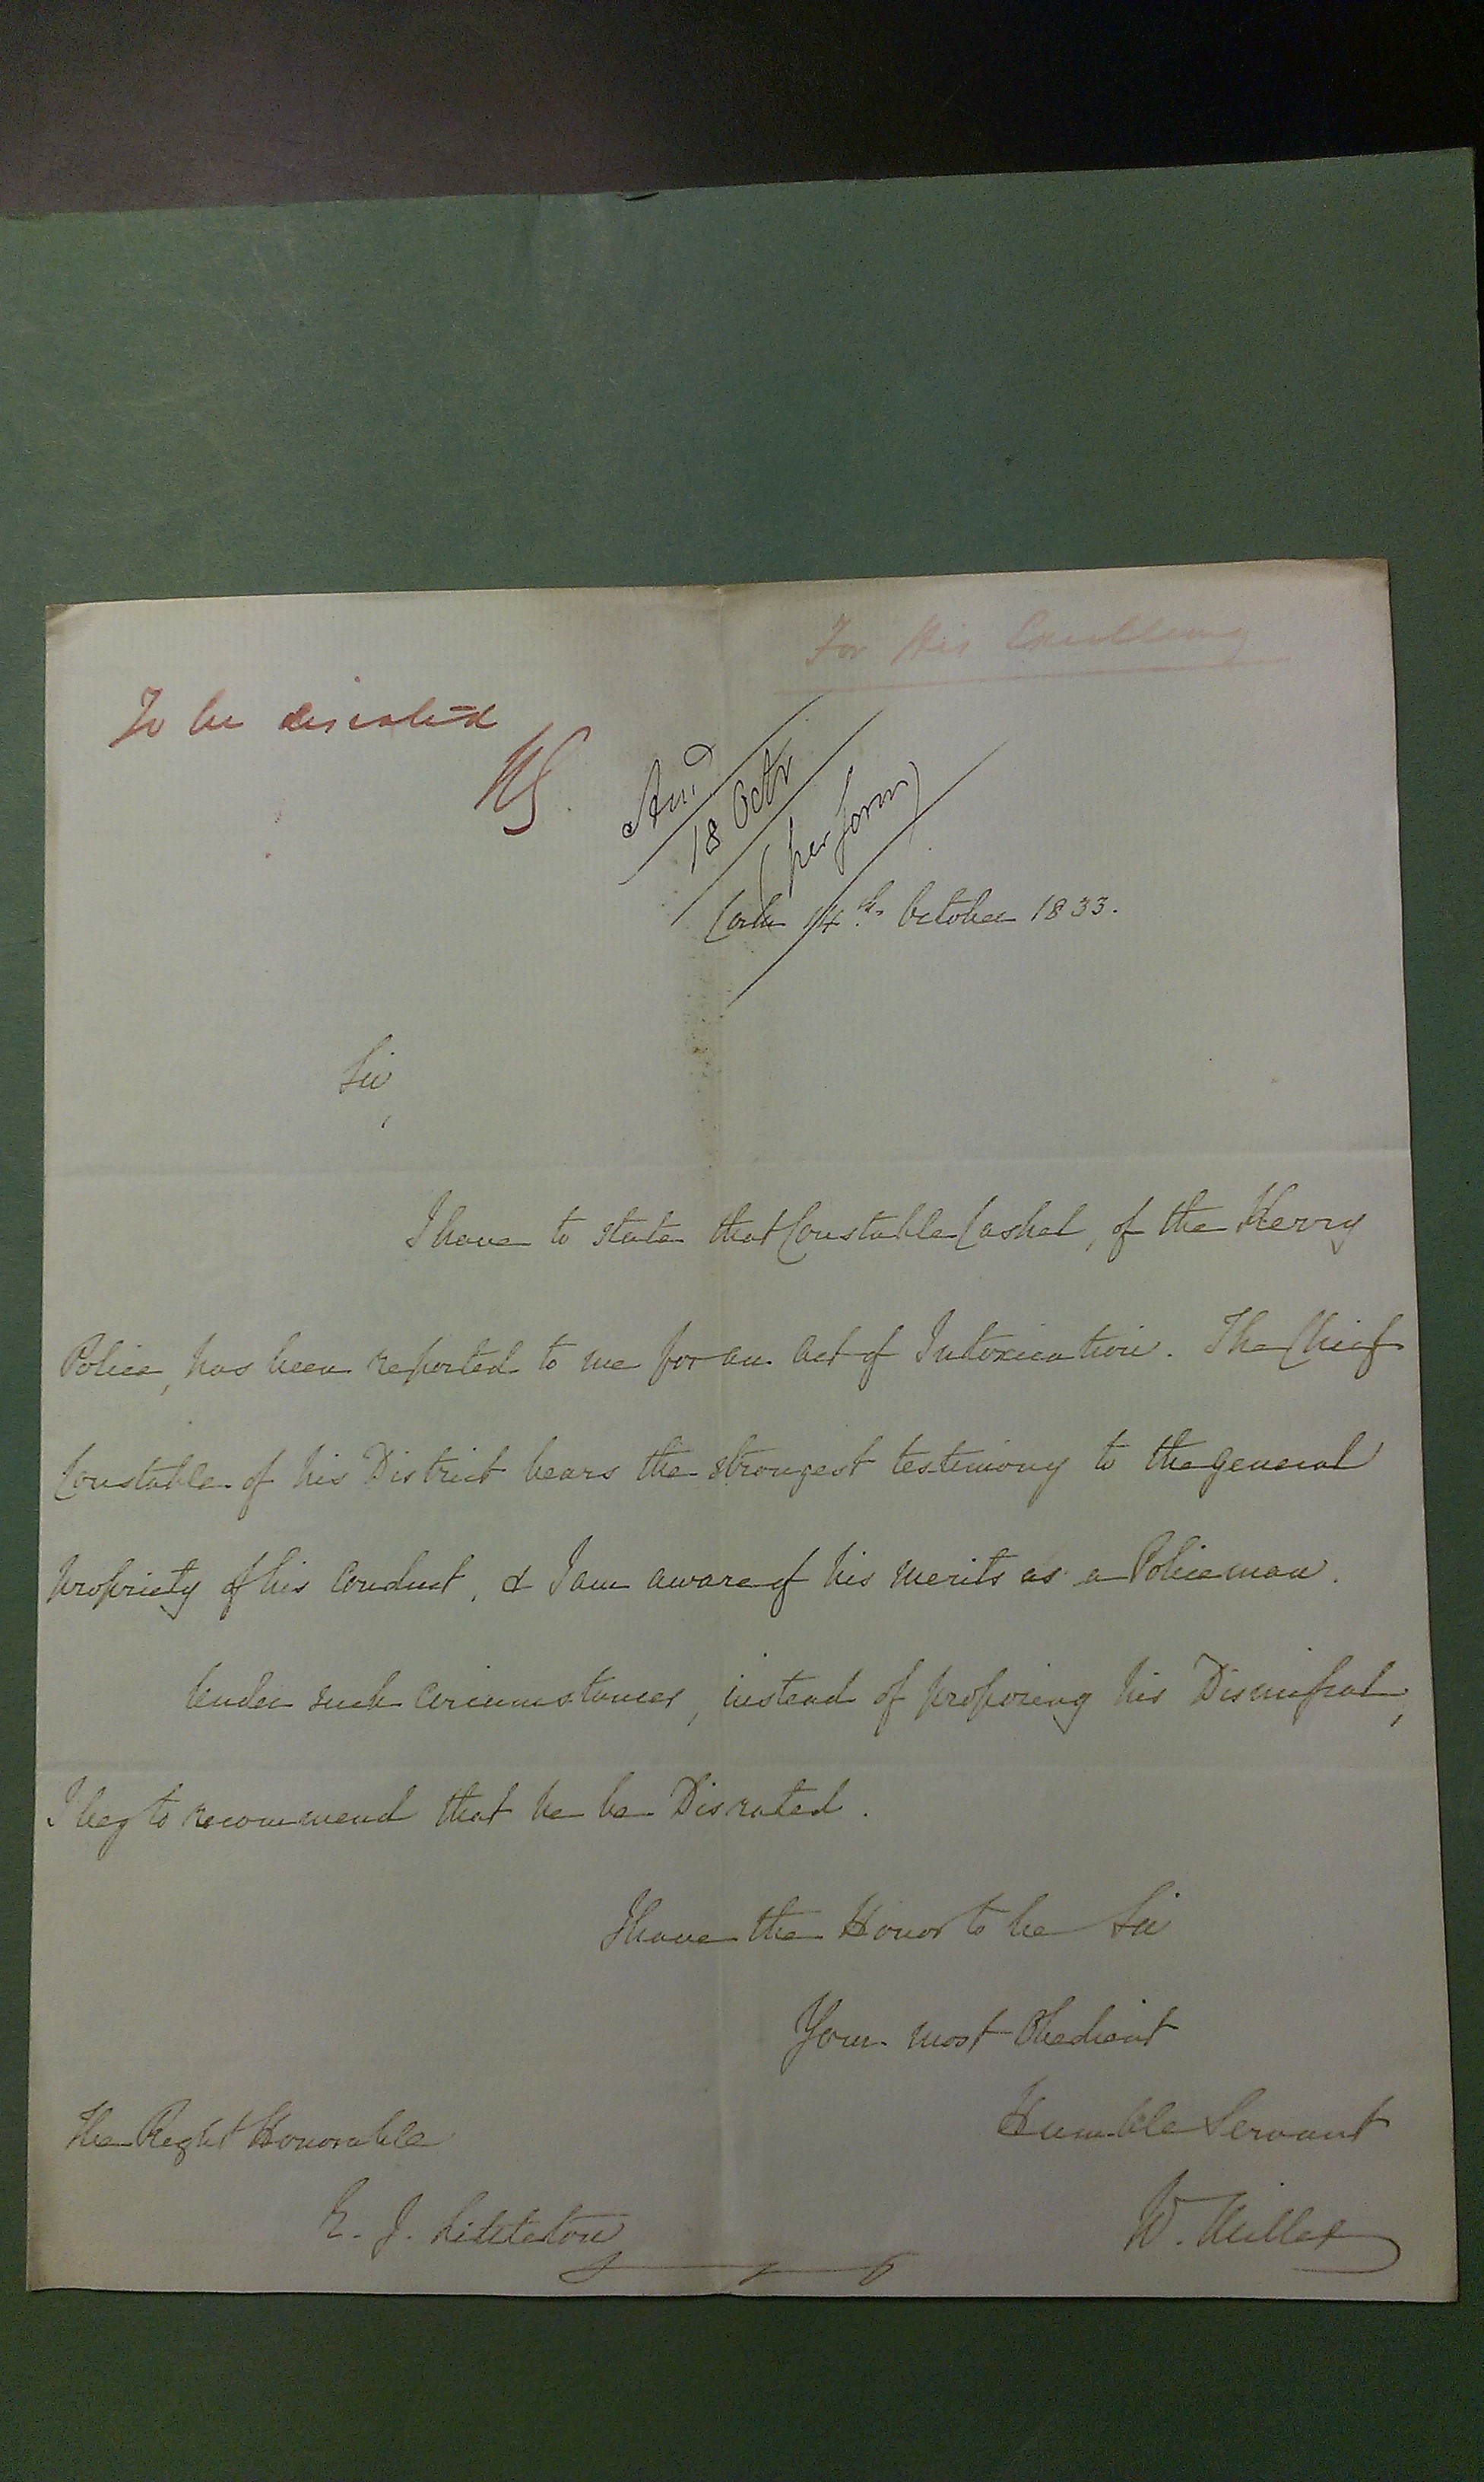 For His Excellency
To be disrated
Ans.d
18 Octr
(per form)
Cork 14th October 1833.
Sir,
I have to state that Constable Cashel, of the Kerry
Police, has been reported to me for an act of Intoxication. The Chief
Constable of his District bears the strongest testimony to the general
propriety of his conduct, & I am aware of his merits as a Policeman.
Under such circumstances, instead of proposing his Dismissal,
I beg to recommend that he be Disrated.
I have the Honor to be Sir
Your most Obedient
Humble Servant
W. Miller
The Right Honorable
E. J. Littleton